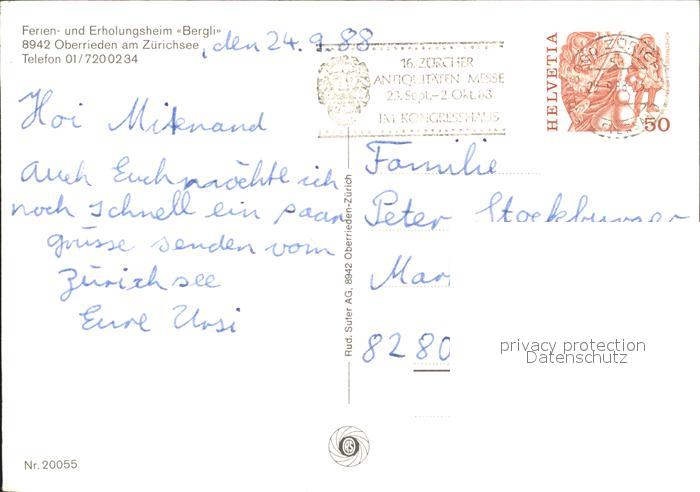 Ferien- und Erholungsheim «Bergli»
8942 Oberrieden am Zürichsee
Telefon 01/7200234
, den 24.9.88
16. ZÜRCHER
ANTIQUITÄTEN MESSE
23. Sept. - 2. Okt. 88
IM KONGRESSHAUS
HELVETIA
50
Hoi Mitenand
Auch Euch möchte ich
noch schnell ein paar
grüsse senden vom
Zürichsee
Eure Ursi
Familie
Peter Stockburger
Mar
8280
privacy protection
Datenschutz
Rud. Suter AG, 8942 Oberrieden-Zürich
RS
Nr. 20055